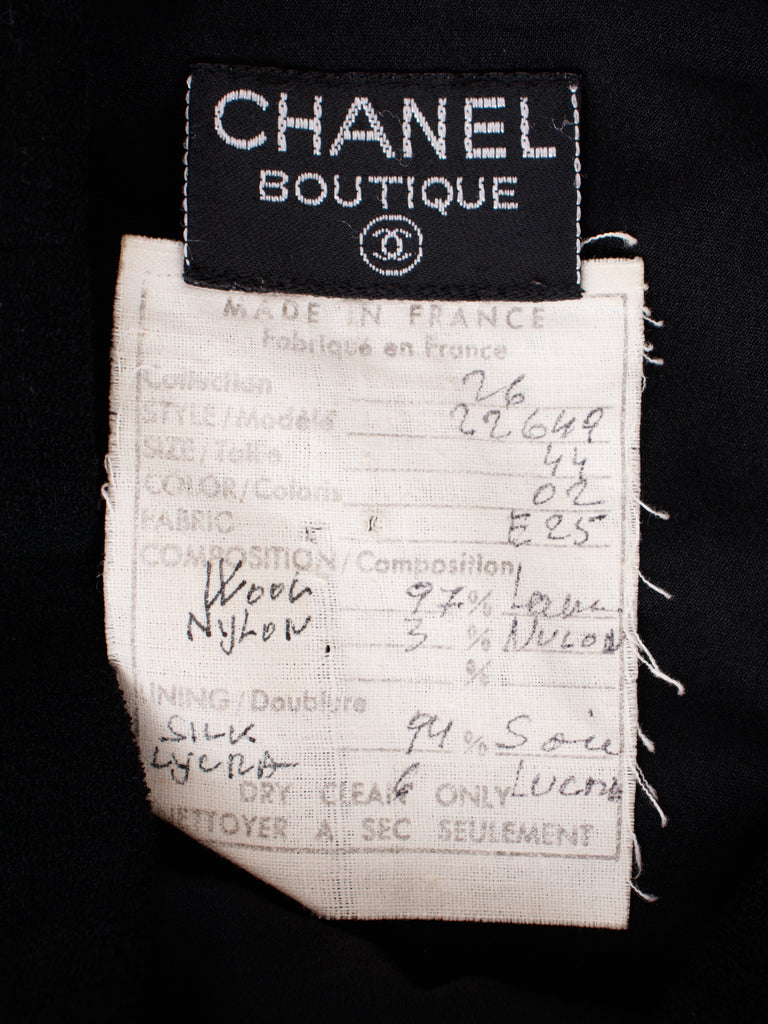 CHANEL
BOUTIQUE
MADE IN FRANCE
Fabriqué en France
Collection 26
STYLE/Modèle 22649
SIZE/Taille 44
COLOR/Coloris 02
FABRIC E25
COMPOSITION/Composition
WOOL 97% Laine
NYLON 3 % NYLON
%
LINING/Doublure
SILK 94 % Soie
LYCRA 6 LYCRA
DRY CLEAN ONLY
NETTOYER A SEC SEULEMENT